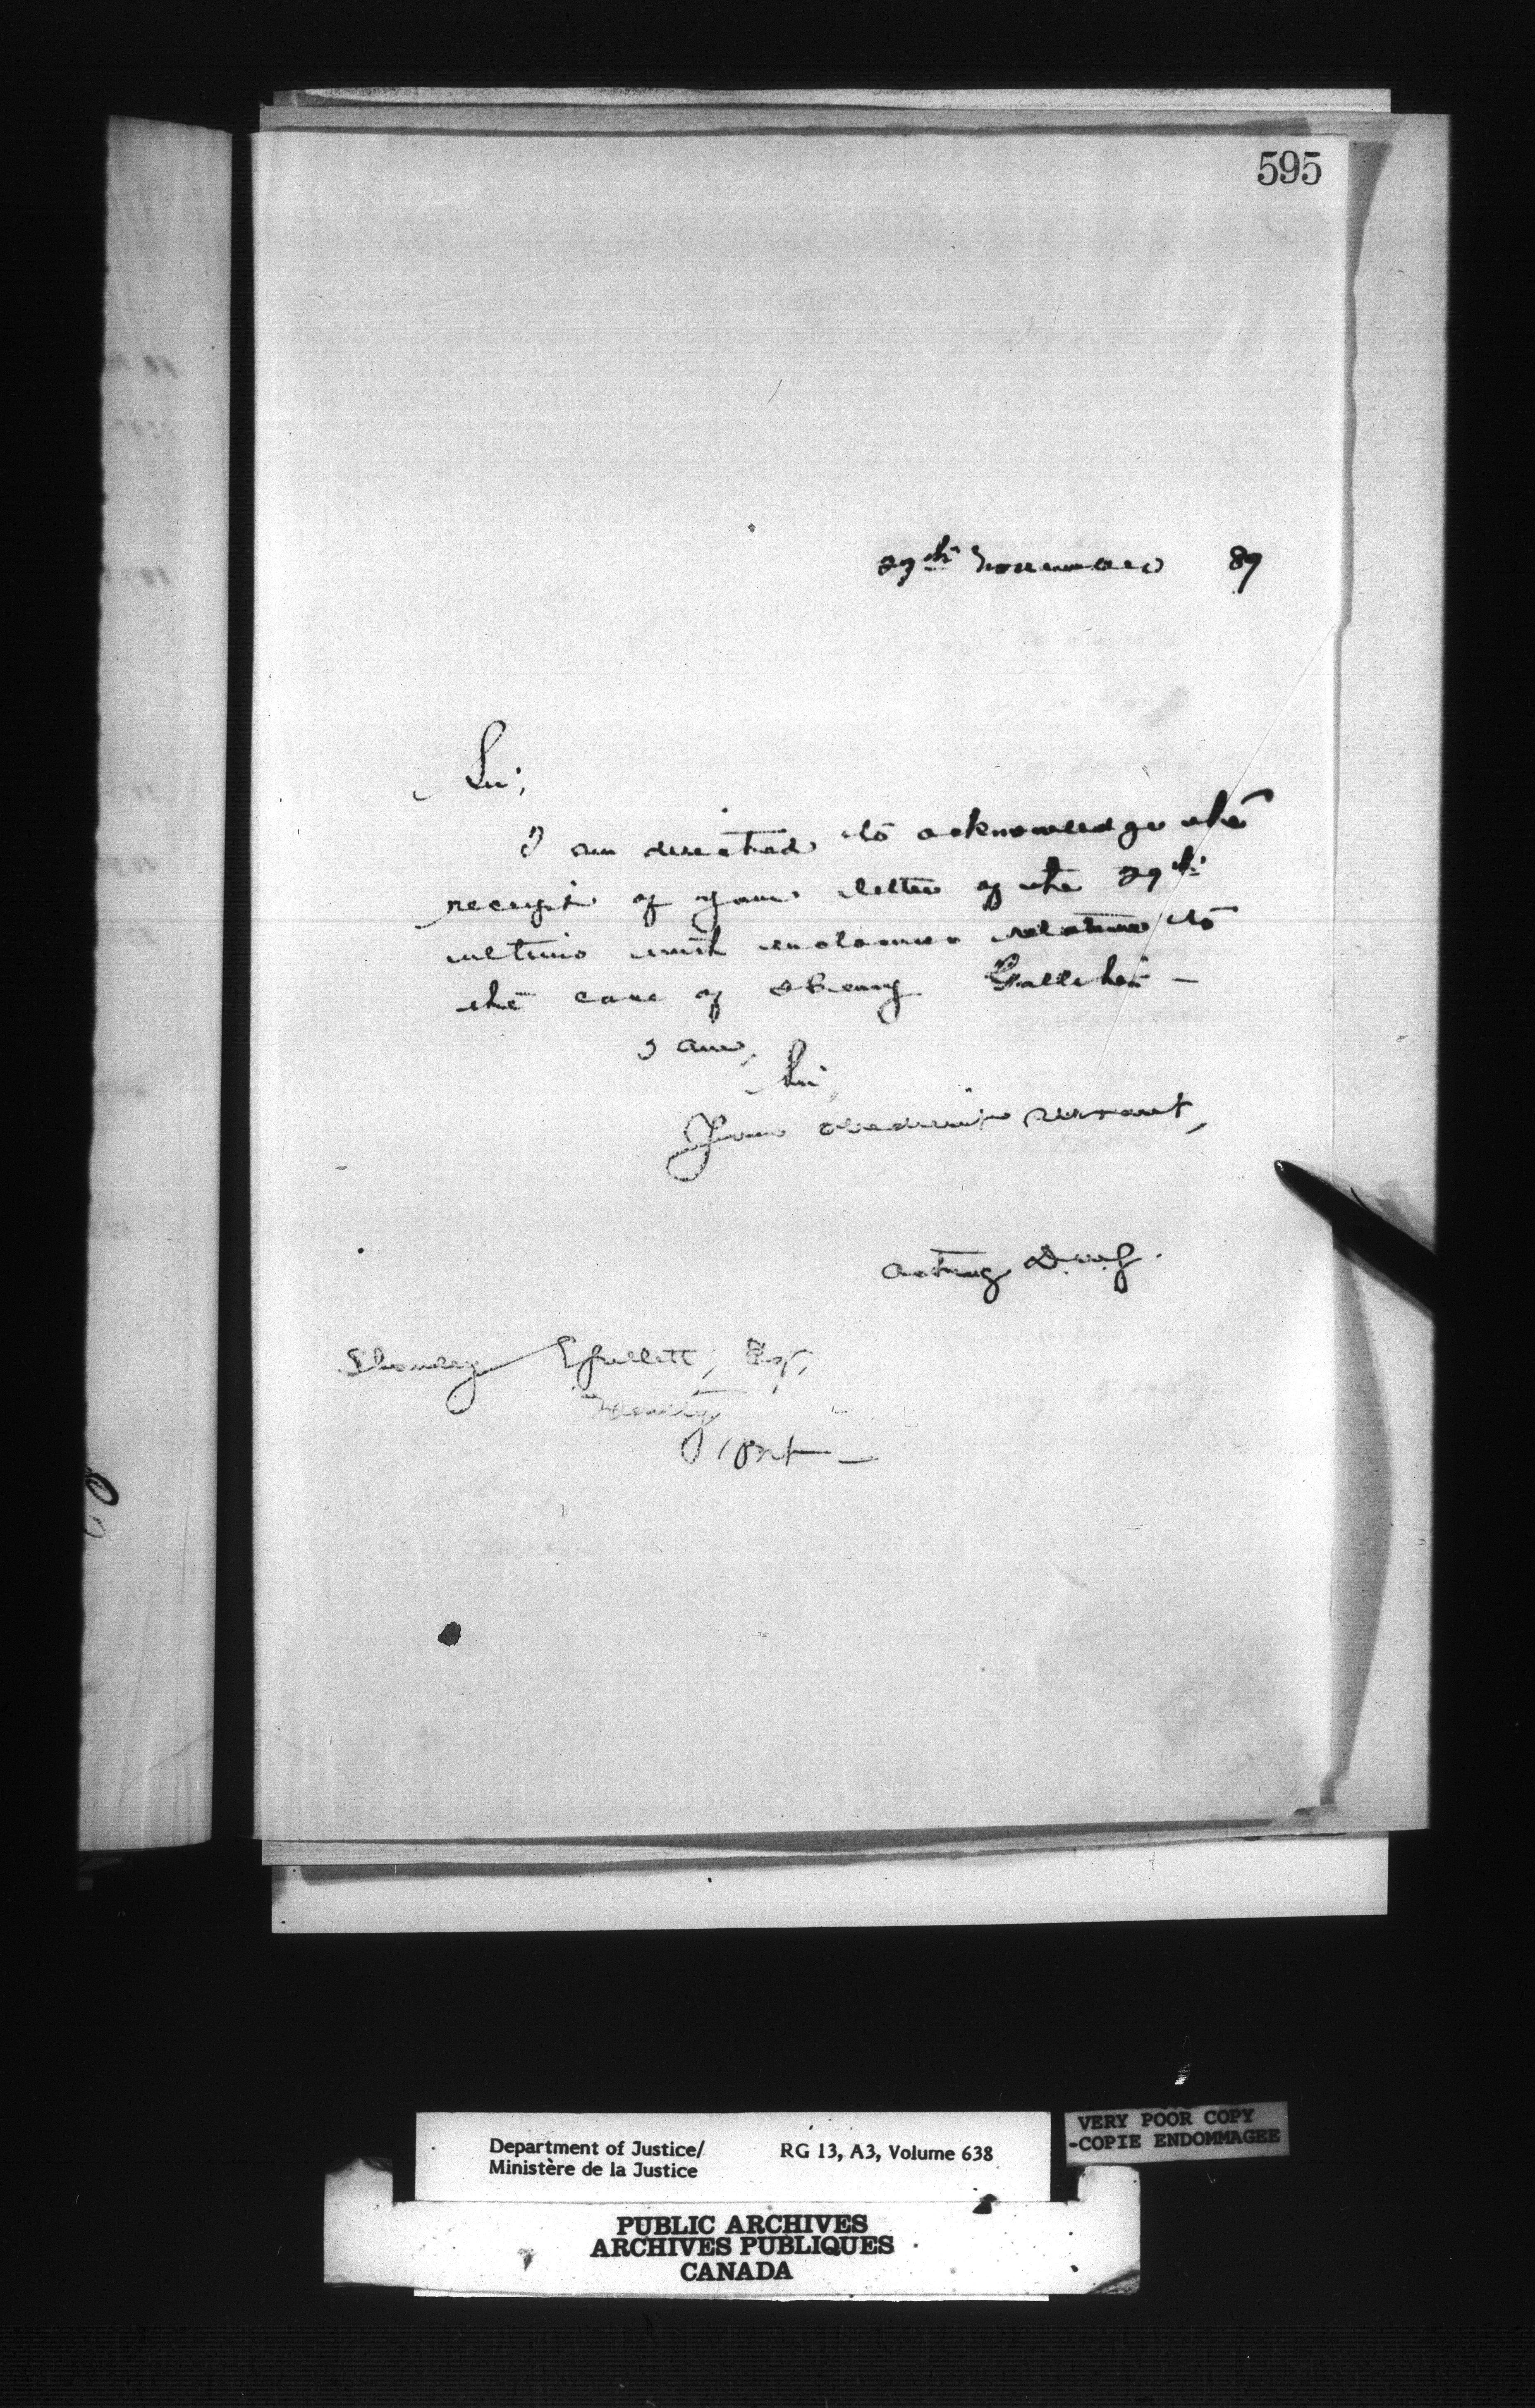 595
29th November 89
Sir,
I am directed to acknowledge the
receipt of your letter of the 29th
ultimo with enclosures relative to
the case of Henry
I am,
Sir,
Your obedient servant,
Acting D.M.J.
Esq,
Ont —
Department of Justice/ RG 13, A3, Volume 638
Ministère de la Justice
VERY POOR COPY
-COPIE ENDOMMAGEE
PUBLIC ARCHIVES
ARCHIVES PUBLIQUES
CANADA